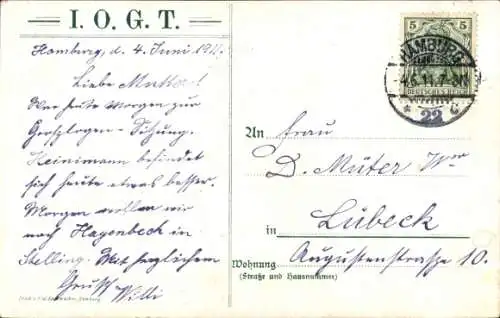 I. O. G. T.
Hamburg, d. 4. Juni 1911.
Liebe Mutter!
War heute Morgen zur
Großlogen-Sitzung.
Heinimann befindet
sich heute etwas besser.
Morgen wollen wir
nach Hagenbeck in
Stelling. Mit herzlichem
Gruß Willi
5 5
DEUTSCHES REICH
HAMBURG
4.6.11.7-8N
* 22 c
An Frau
D. Müter Wwe
in Lübeck
Wohnung Augustenstraße 10.
(Straße und Hausnummer)